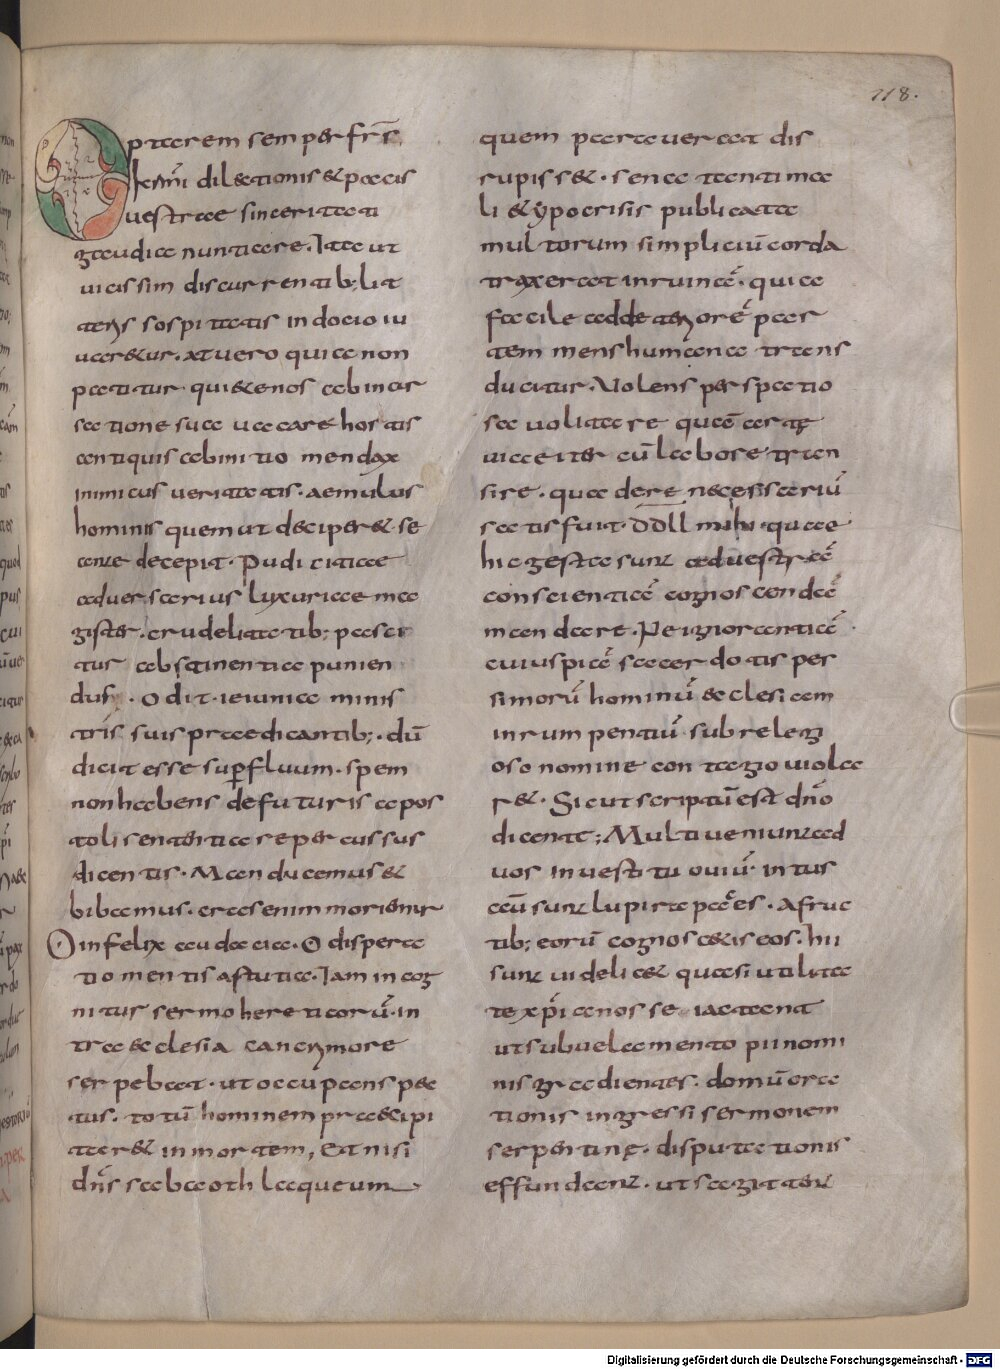 118.
Optarem semper frs̄
kmī dilectionis & pacis
uestrae sinceritati
gaudia nuntiare. Ita ut
uicissim discurrentib; lit
teris sospitatis indicio iu
uaremur. At uero quia non
patitur quietenos ab incur
satione sua uacare hostis
antiquis ab initio mendax
inimicus ueritatis. aemulus
hominis quem ut deciper& se
ante decepit. Pudicitiae
aduersarius luxuriae ma
gister. crudelitatib; pasci
tur abstinentia punien
dus. Odit ieiunia minis
tris suis praedicantib;. dū
dicit esse superfluum. spem
non habens de futuris apos
toli sententia repercussus
dicentis. Manducemus &
bibamus. cras enim moriemur
O infelix audacia. O dispera
tio mentis astutia. Iam incog
nitus sermo hereticorū. in
tra ecclesia cancri more
serpebat. ut occupans pec
tus. totū hominem praecipi
ter& in mortem, Et nisi
dn̄s sabaoth laqueum
quem parauerat dis
rupiss&. sena tanti ma
li & ypocrisis publicata
multorum simpliciū corda
traxerat in ruinā. quia
facile ad deteriorē par
tem mens humana trans
ducitur. Nolens per spatio
sa uolitare quā certe
uiae iter cū labore tran
sire. qua de re necessariū
satis fuit. ddll mihi. quae
hic gesta sunt ad uestrā
conscientiā cognoscendā
mandare. Ne ignorantiā
cuius piā sacerdotis pes
simorū hominū ecclesiam
inrumpentiū sub relegi
oso nomine contagio uiola
r&. Sicut scriptū est dn̄o
dicente; Multi ueniunt ad
uos in uestitu ouiū. intus
aū sunt lupi rapaces. A fruc
tib; eorū cognoscetis eos. hii
sunt uidelicet quasi utilita
te xp̄ianos se iactant
ut sub uelamento pii nomi
nis gradientes. domū ora
tionis ingressi sermonem
serpentinę. disputationis
effundant. ut sagitter
Digitalisierung gefördert durch die Deutsche Forschungsgemeinschaft - DFG